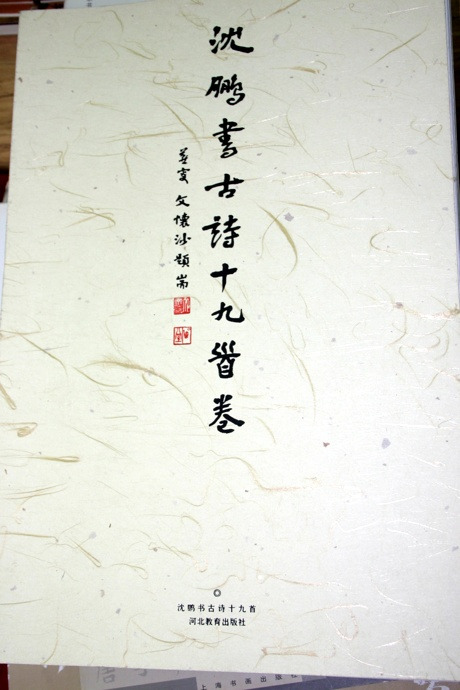 沈鹏書古詩十九首卷
文懷沙題耑
沈鹏书古诗十九首
河北教育出版社
上海书画出版社